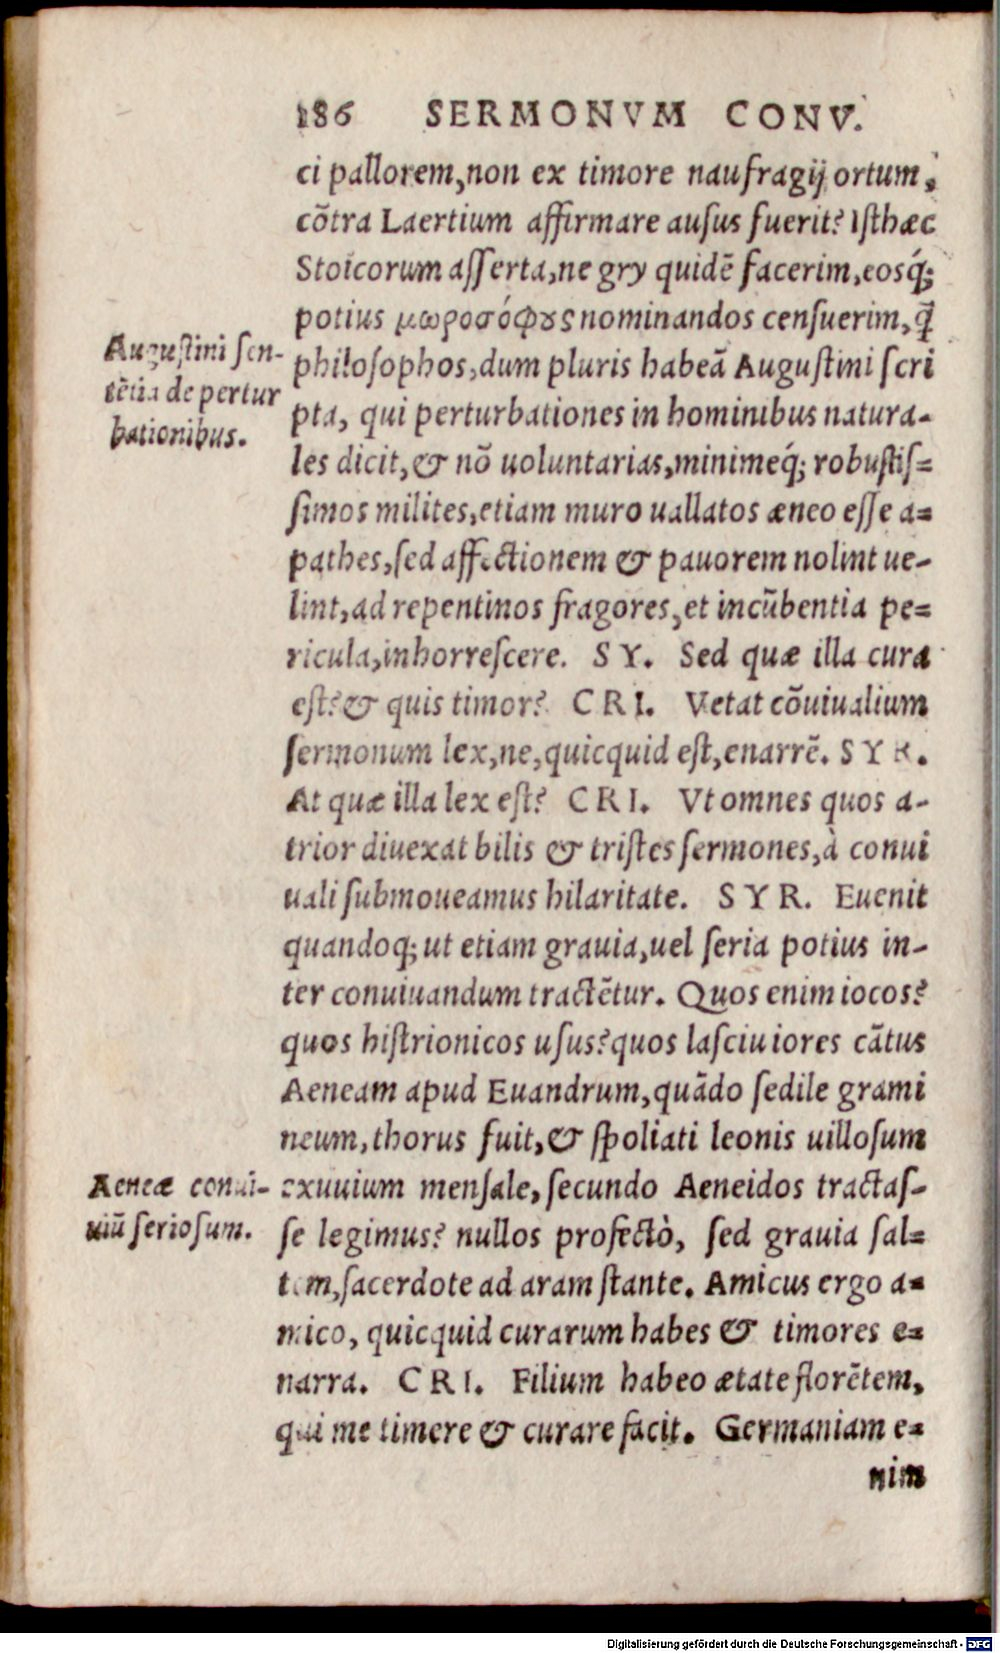 186 SERMONVM CONV.
ci pallorem, non ex timore naufragij ortum,
cõtra Laertium affirmare ausus fuerit? Isthæc
Stoicorum asserta, ne gry quidē facerim, eosq́;
potius μωροσόφȣς nominandos censuerim, q̃
philosophos, dum pluris habeã Augustini scri
pta, qui perturbationes in hominibus natura-
les dicit, & nõ uoluntarias, minimeq́; robustis=
simos milites, etiam muro uallatos æneo esse a=
pathes, sed affectionem & pauorem nolint ue-
lint, ad repentinos fragores, et incũbentia pe=
ricula, inhorrescere. SY. Sed quæ illa cura
est? & quis timor? CRI. Vetat cõuiualium
sermonum lex, ne, quicquid est, enarrē. SYR.
At quæ illa lex est? CRI. Vt omnes quos a-
trior diuexat bilis & tristes sermones, à conui
uali submoueamus hilaritate. SYR. Euenit
quandoq; ut etiam grauia, uel seria potius in-
ter conuiuandum tractētur. Quos enim iocos?
quos histrionicos usus? quos lasciuiores cãtus
Aeneam apud Euandrum, quãdo sedile grami
neum, thorus fuit, & spoliati leonis uillosum
exuuium mensale, secundo Aeneidos tractas-
se legimus? nullos profectò, sed grauia sal=
tem, sacerdote ad aram stante. Amicus ergo a=
mico, quicquid curarum habes & timores e=
narra. CRI. Filium habeo ætate florētem,
qui me timere & curare facit. Germaniam e=
nim
Augustini sen-
tētia de pertur
bationibus.
Aeneæ conui-
uiũ seriosum.
Digitalisierung gefördert durch die Deutsche Forschungsgemeinschaft - DFG